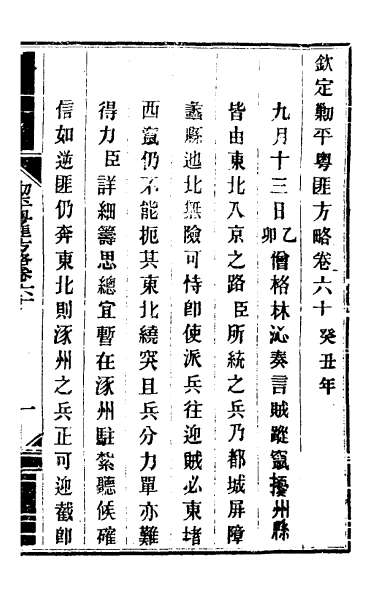 欽定勦平粵匪方略卷六十 癸丑年
九月十三日乙卯僧格林沁奏言賊蹤竄擾州縣
皆由東北入京之路臣所統之兵乃都城屏障
蠡縣迤北無險可恃卽使派兵往迎賊必東堵
西竄仍不能扼其東北繞突且兵分力單亦難
得力臣詳細籌思總宜暫在涿州駐紮聽候確
信如逆匪仍奔東北則涿州之兵正可迎截卽